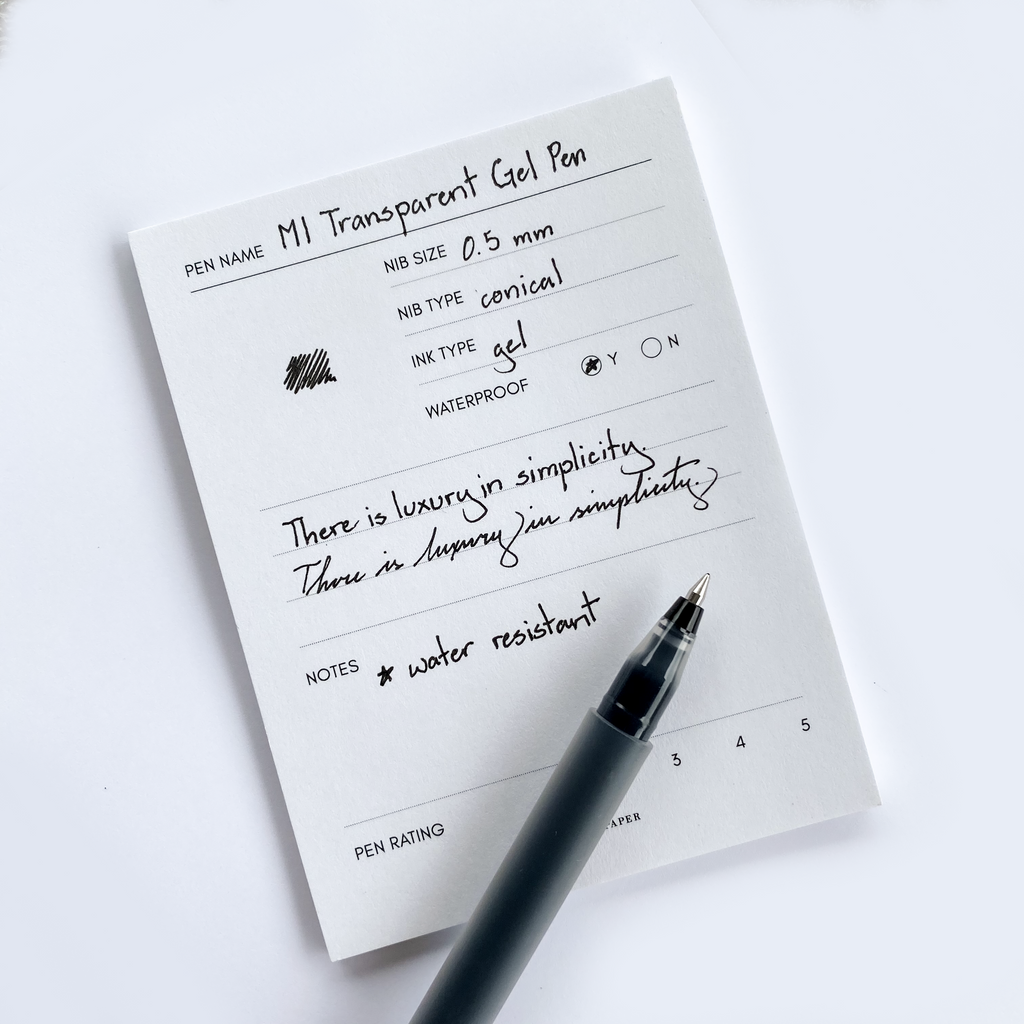 PEN NAME MI Transparent Gel Pen
NIB SIZE 0.5 mm
NIB TYPE conical
INK TYPE gel
WATERPROOF Y N
There is luxury in simplicity.
There is luxury in simplicity.
NOTES * water resistant
PEN RATING 3 4 5